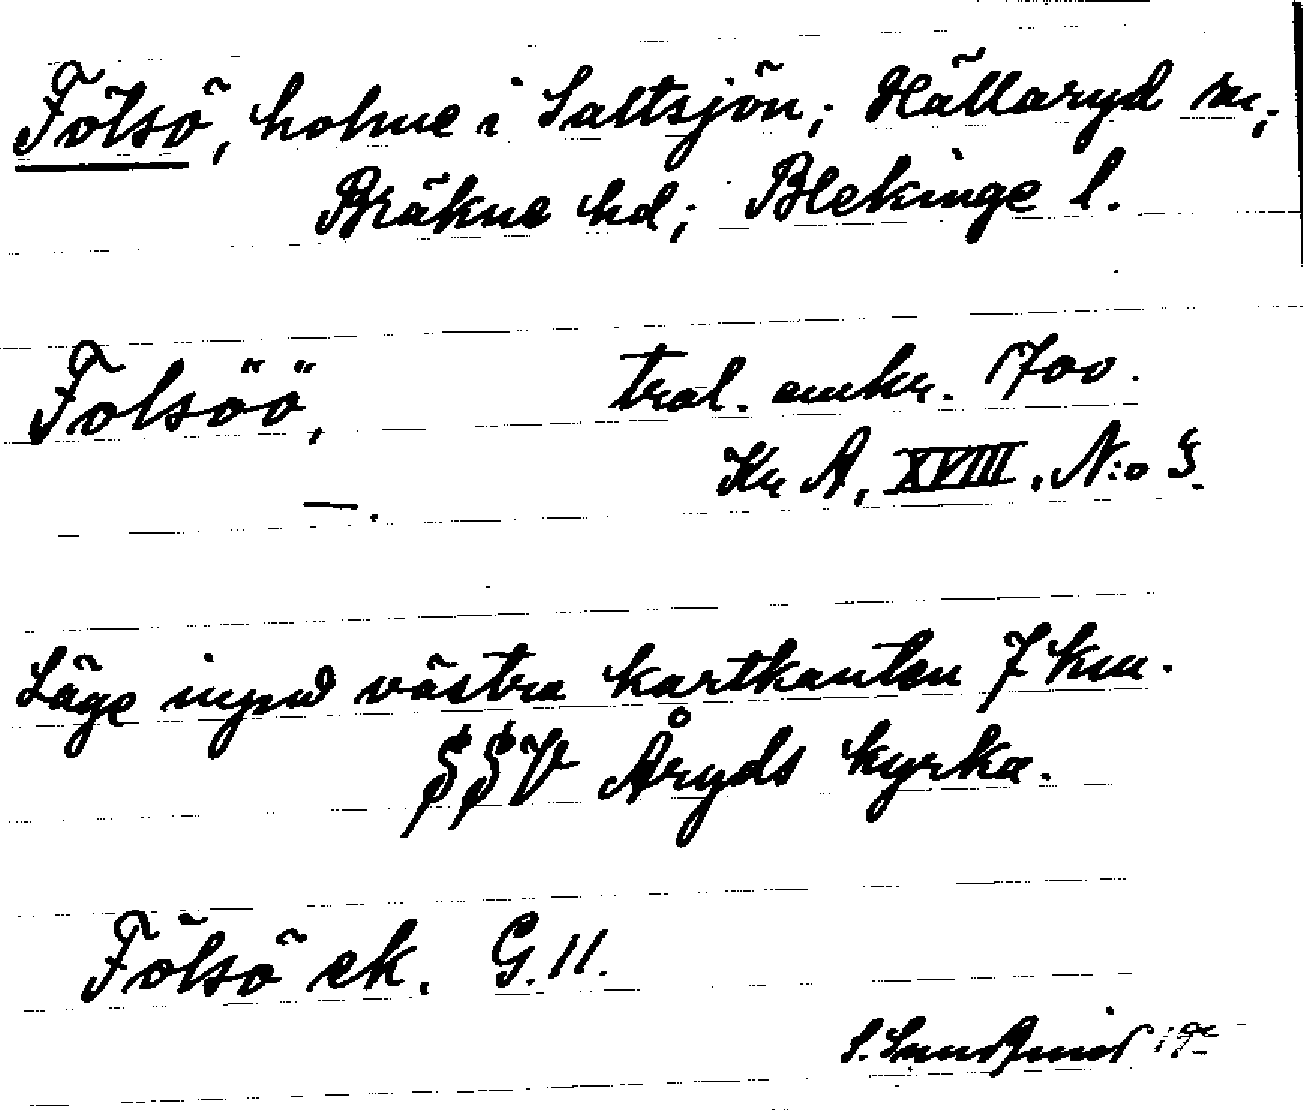 Fölsö, holme i Saltsjön; Hällaryd sn;
Bräkne hd; Blekinge l.
Folsöö, tral. omkr. 1700.
Kr A, XVIII. N:o 3
—.
Läge invid västra kartkanten 7 km.
SSV Åryds kyrka.
Fölsö ek. G.11.